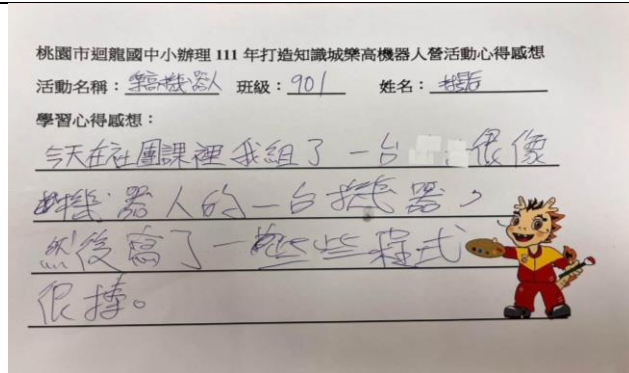 桃園市迴龍國中小辦理 111 年打造知識城樂高機器人營活動心得感想
活動名稱：樂高機器人 班級：901 姓名：
學習心得感想：
今天在社團課裡我組了一台很像
機器人的一台機器，
然後寫了一些些程式
很棒。